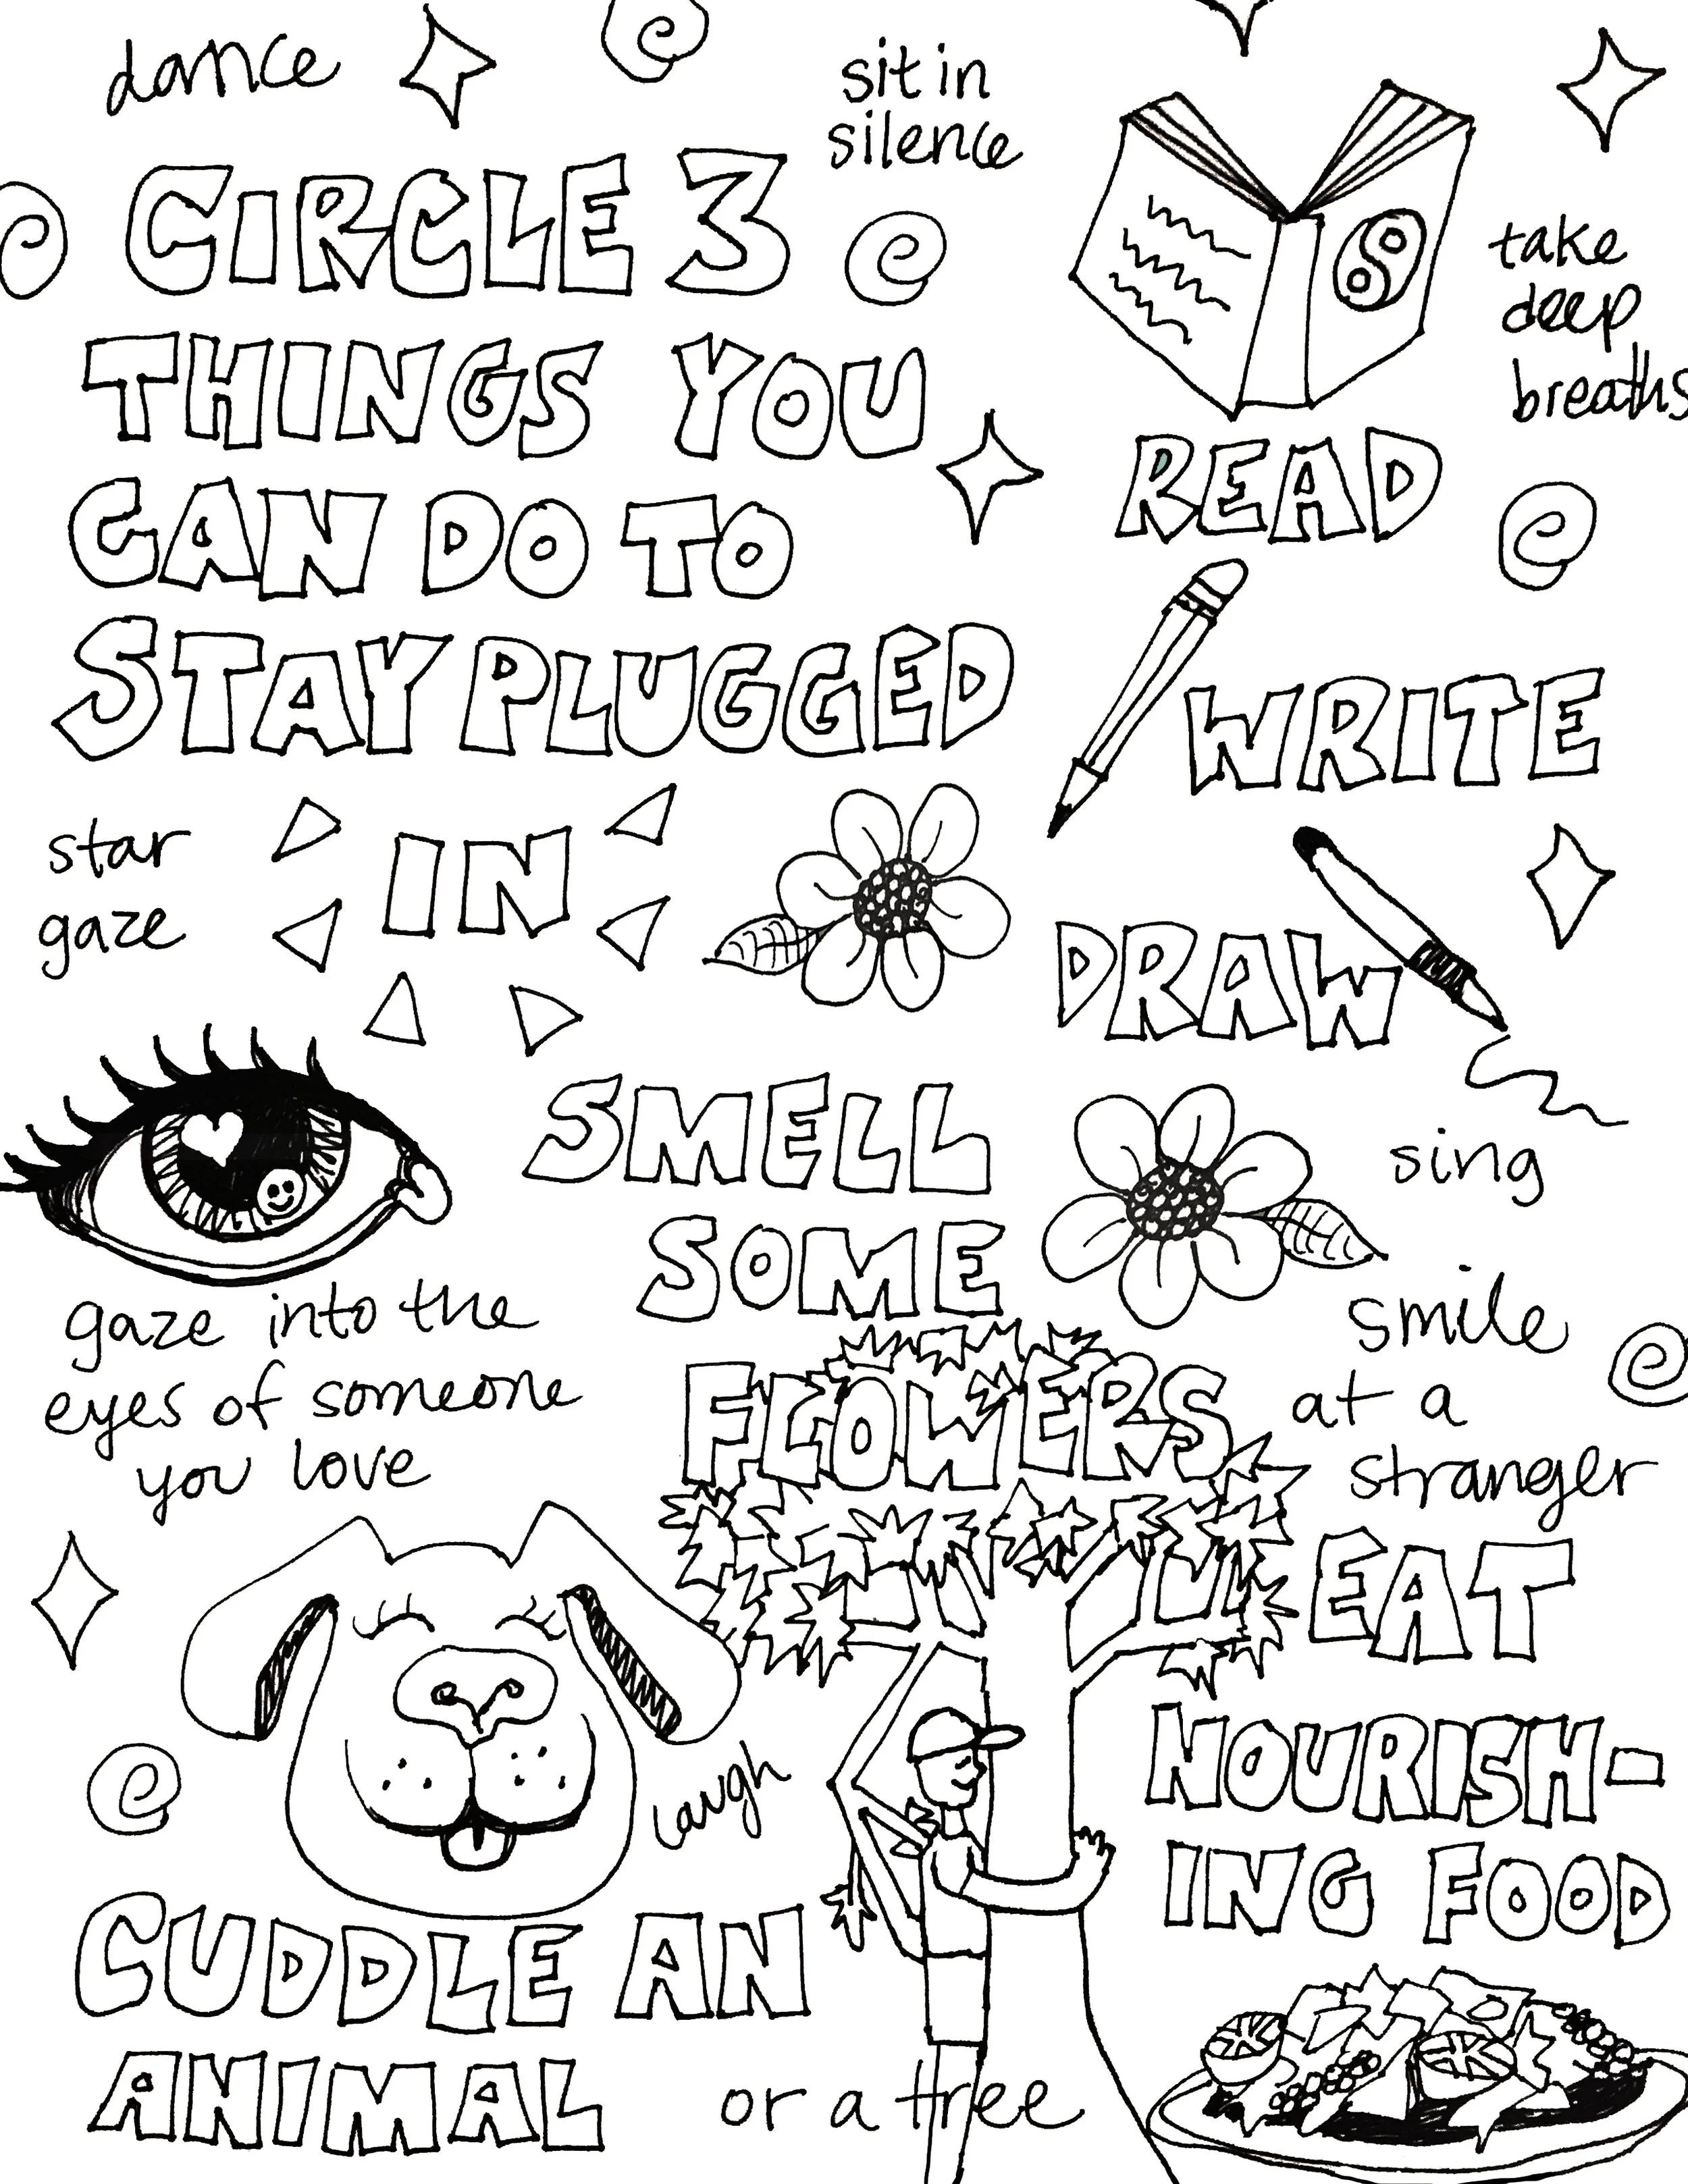 dance
sit in
silence
CIRCLE 3
THINGS YOU
CAN DO TO
STAY PLUGGED
IN
take
deep
breaths
READ
WRITE
star
gaze
DRAW
SMELL
SOME
FLOWERS
sing
gaze into the
eyes of someone
you love
smile
at a
stranger
EAT
NOURISH-
ING FOOD
laugh
CUDDLE AN
ANIMAL or a tree